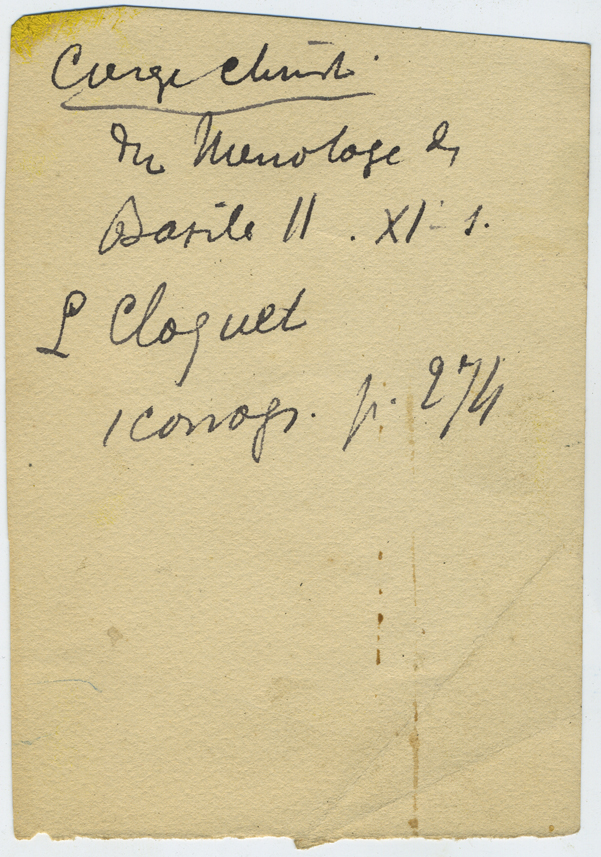 Vierge Christ.
du Menologe de
Basile II. XI s.
L Cloquet
iconogr. p. 274